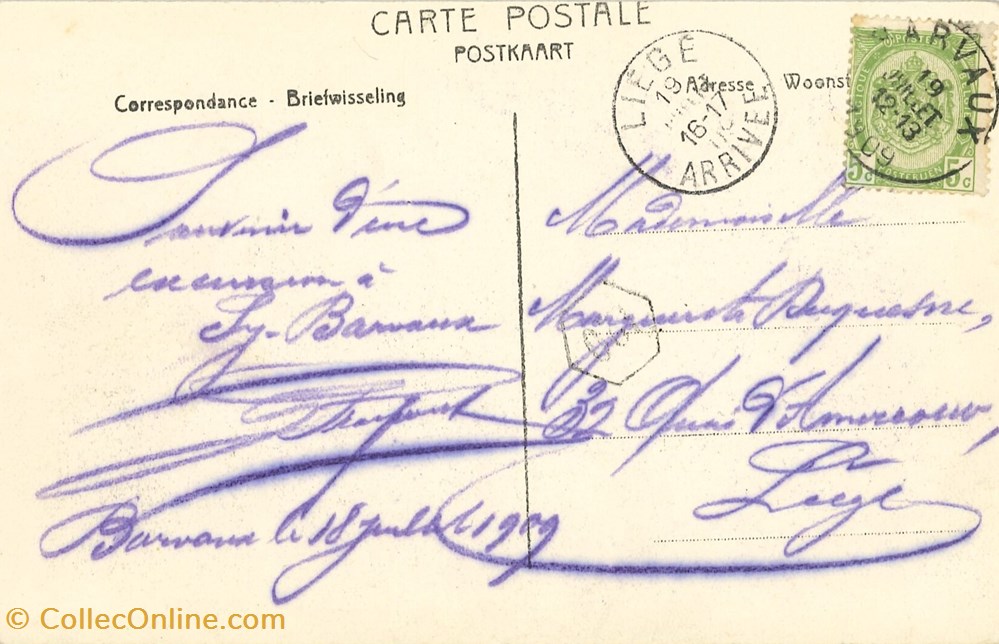 CARTE POSTALE
POSTKAART
Correspondance - Briefwisseling
Adresse Woonst
LIEGE
19
16-17
ARRIVEE
BARVAUX
19
JUILLET
12-13
09
POSTES
5c 5c
Souvenir d'une
excursion à
Sy-Barvaux
Barvaux le 18 juillet 1909
Mademoiselle
Marguerite Duquesne,
32 Quai d'Amercoeur,
Liège
© CollecOnline.com